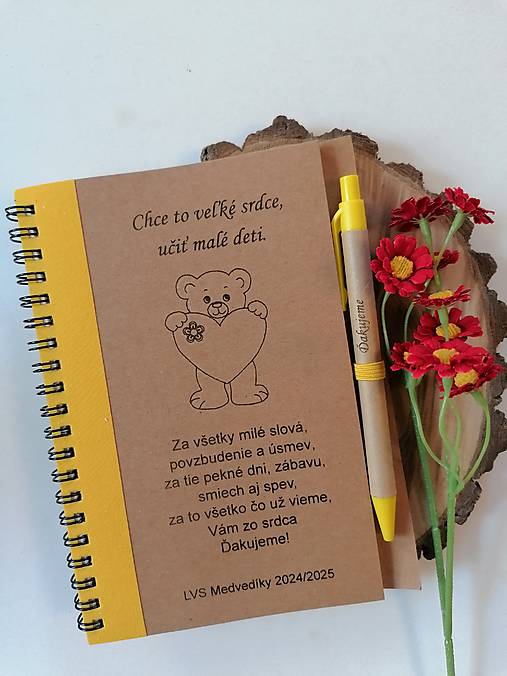 Chce to veľké srdce,
učiť malé deti.
Za všetky milé slová,
povzbudenie a úsmev,
za tie pekné dni, zábavu,
smiech aj spev,
za to všetko čo už vieme,
Vám zo srdca
Ďakujeme!
LVS Medvedíky 2024/2025
Ďakujeme